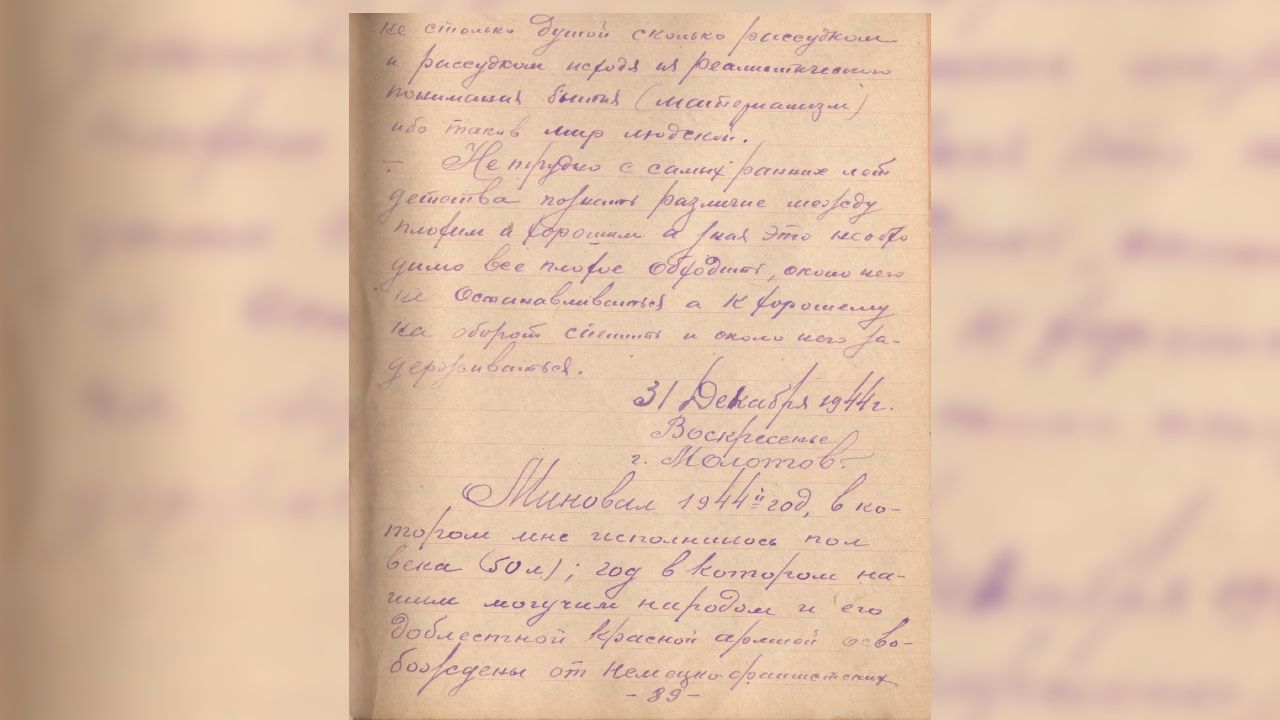 не столько душой сколько рассудком
и рассудком исходя из реалистического
понимания бытия (материализм)
ибо таков мир людской.
— Не трудно с самых ранних лет
детства познать различие между
плохим и хорошим а зная это необхо
димо все плохое обходить, около него
не останавливаться а к хорошему
на оборот спешить и около него за-
держиваться.
31 Декабря 1944 г.
Воскресенье
г. Молотов.
Миновал 1944й год, в ко-
тором мне исполнилось пол
века (50 л); год в котором на-
шим могучим народом и его
доблестной красной армией осво-
бождены от немецко-фашистских
- 89 -